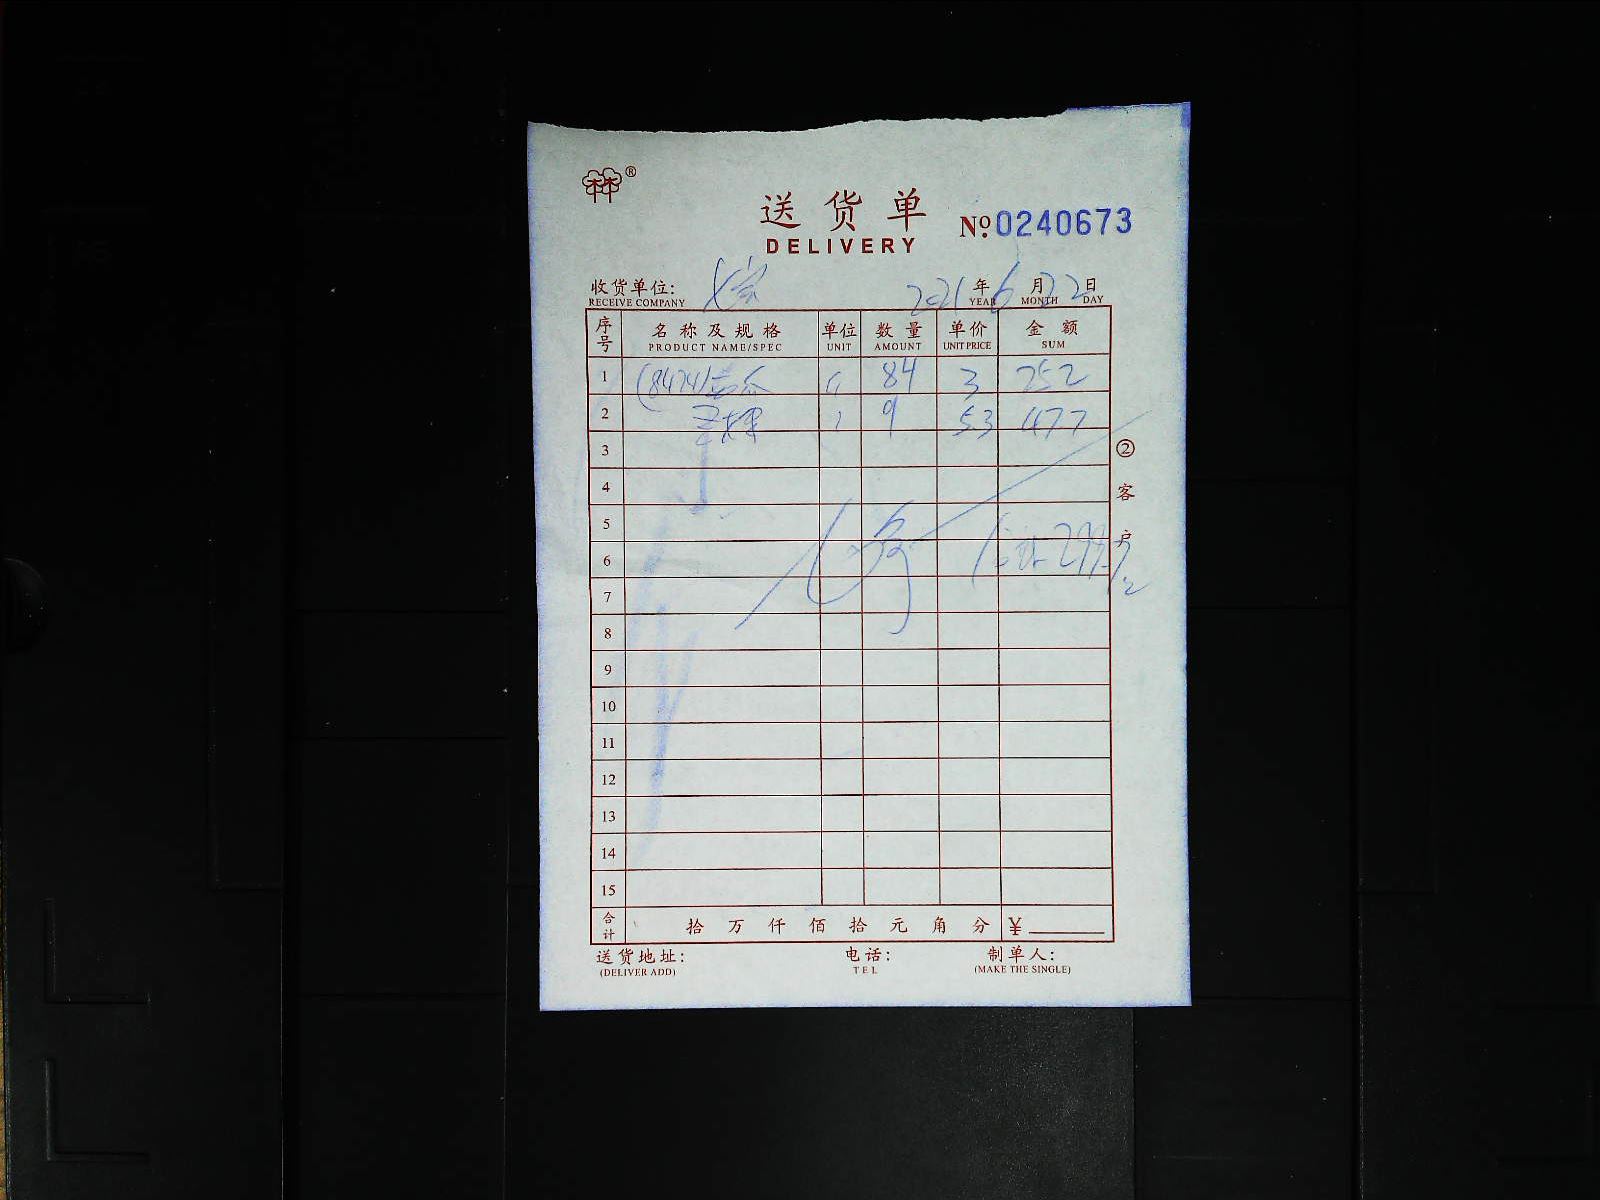 ®
送货单
DELIVERY
№ 0240673
收货单位: 2021 年 6 月 22 日
RECEIVE COMPANY YEAR MONTH DAY
序号 名称及规格 单位 数量 单价 金额
PRODUCT NAME/SPEC UNIT AMOUNT UNIT PRICE SUM
1 (8424) 84 3 252
2 9 53 477
3
② 客户
4
5
6
7
8
9
10
11
12
13
14
15
合计 拾 万 仟 佰 拾 元 角 分 ¥
送货地址: 电话: 制单人:
(DELIVER ADD) TEL (MAKE THE SINGLE)